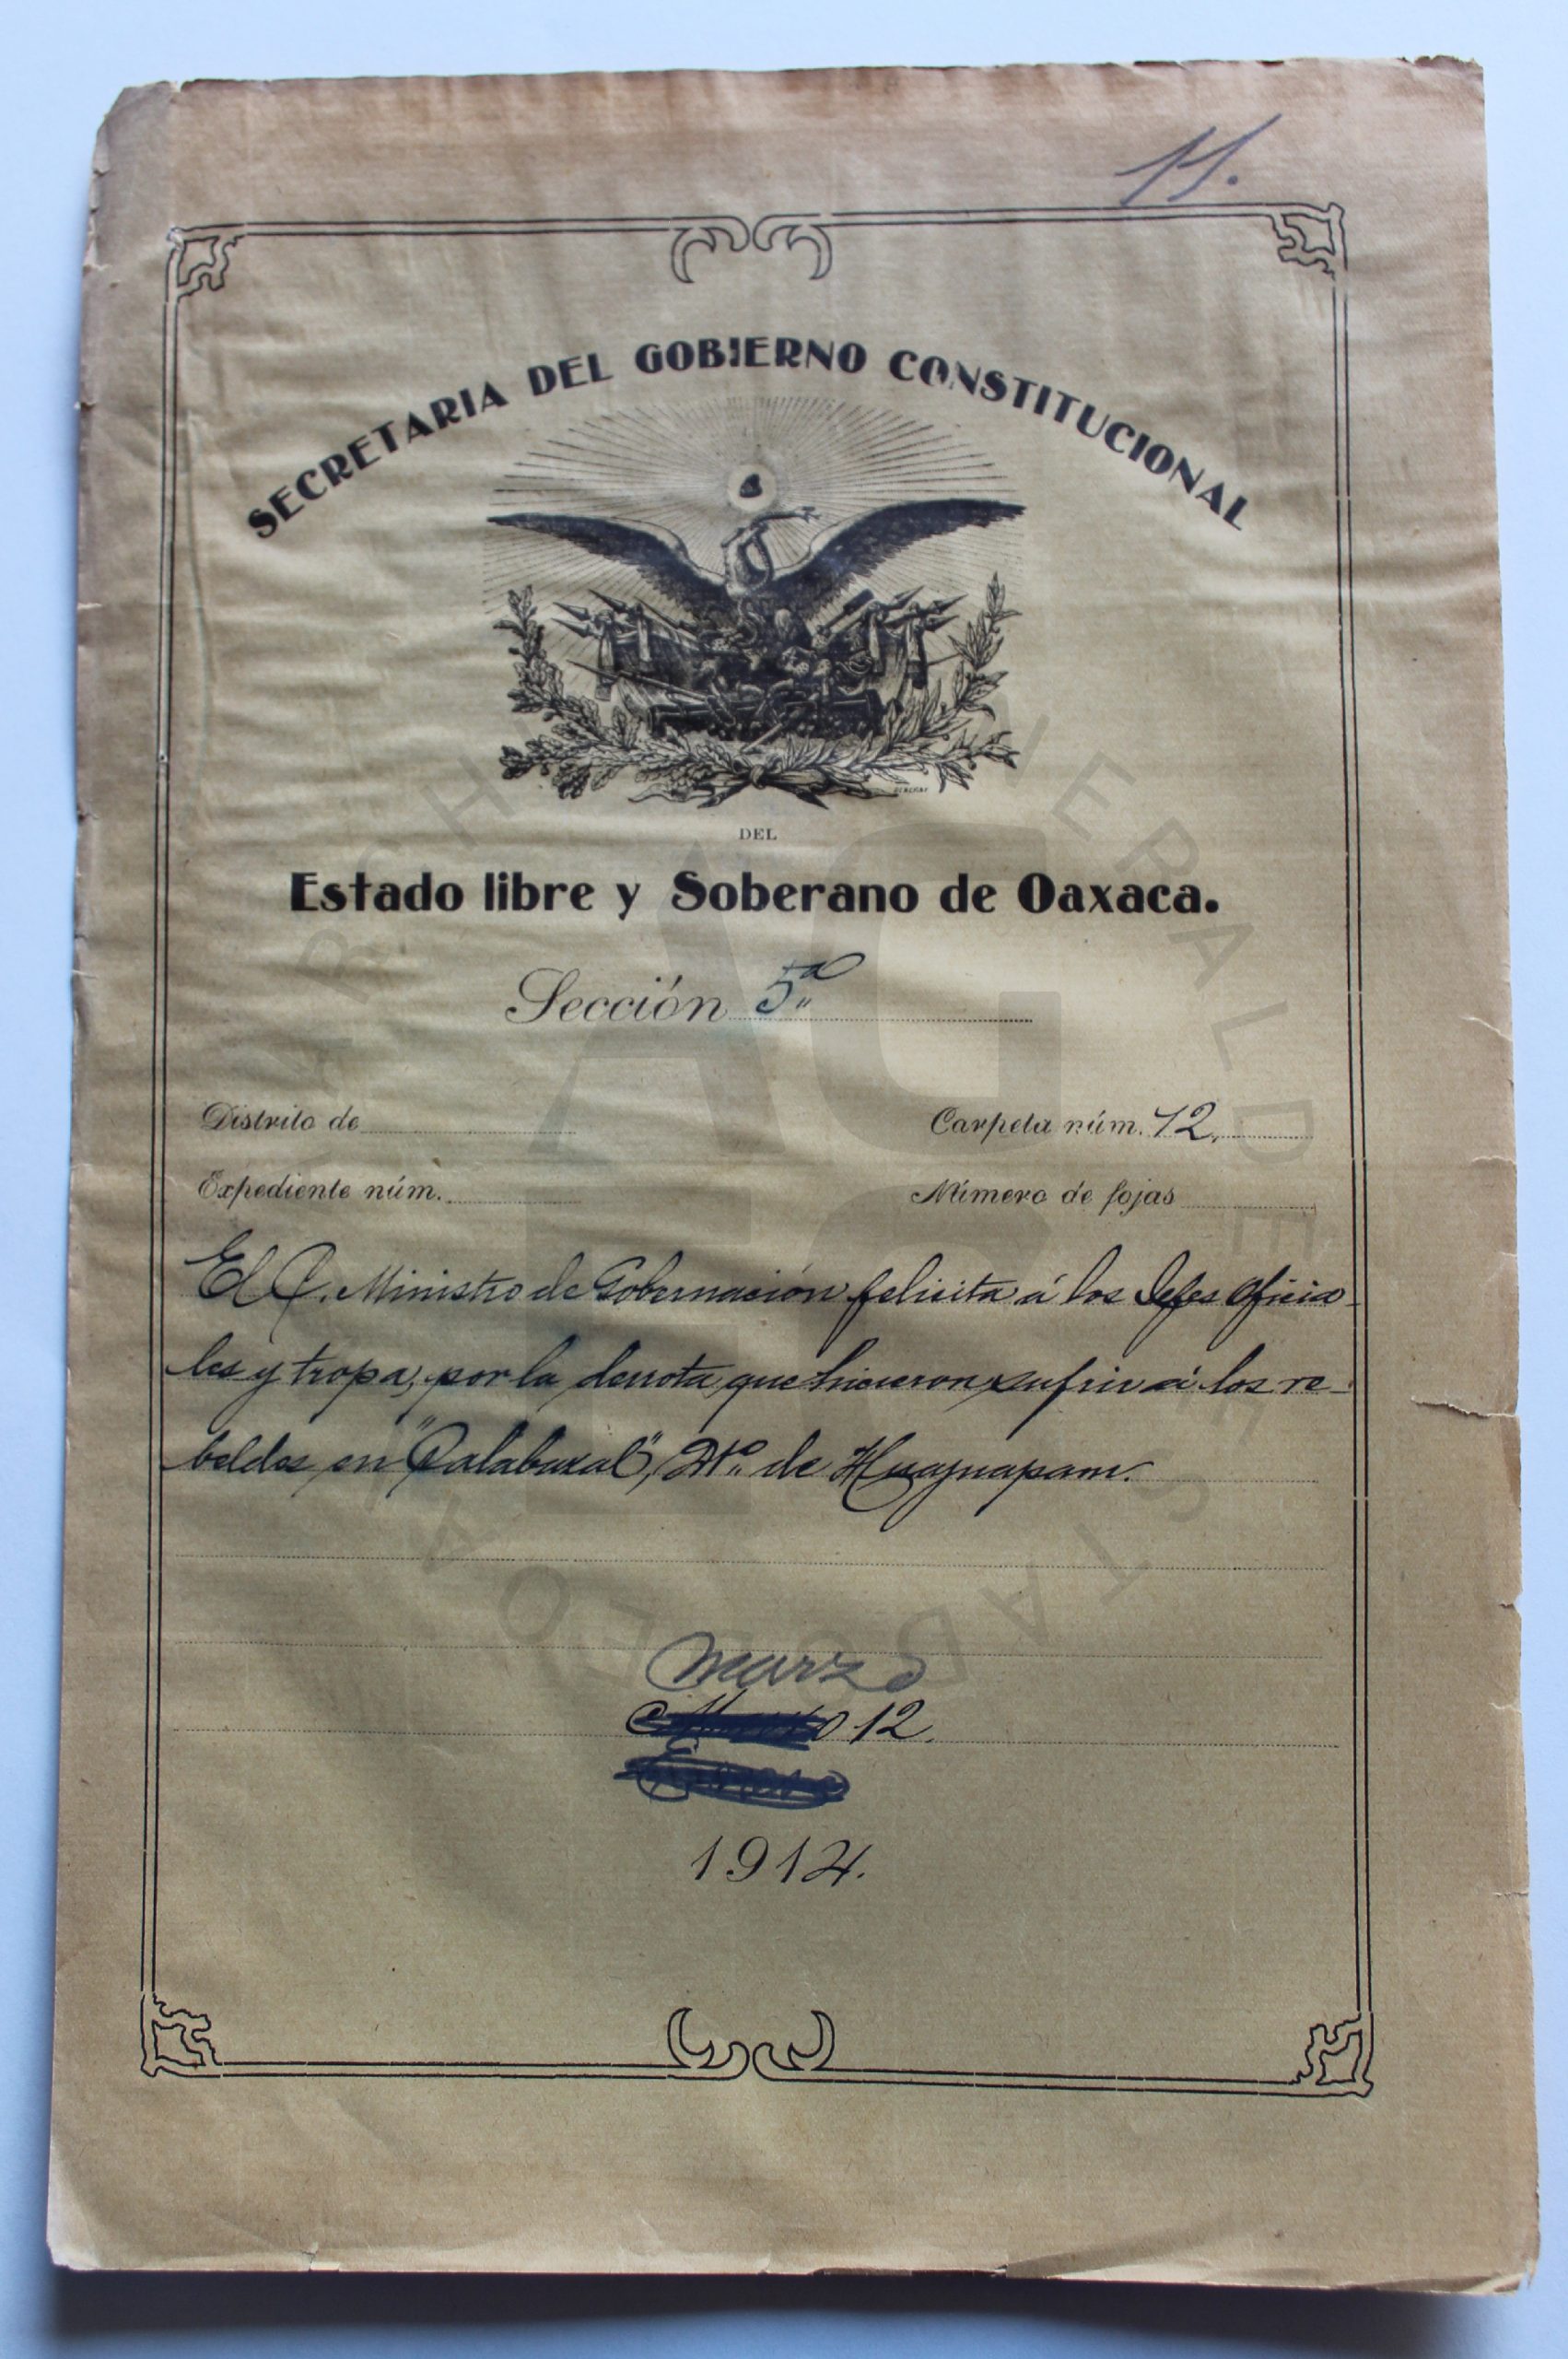 11.
SECRETARIA DEL GOBIERNO CONSTITUCIONAL
DEL
Estado libre y Soberano de Oaxaca.
Sección 5ª
Distrito de
Carpeta núm. 12.
Expediente núm.
Número de fojas
El C. Ministro de Gobernación felicita á los Jefes Oficia-
les y tropa, por la derrota que hicieron sufrir á los re-
beldes en "Calabazal", Dto. de Huajuapam.
marzo
12.
1912.
ARCHIVO GENERAL DEL ESTADO DE OAXACA
AGEO